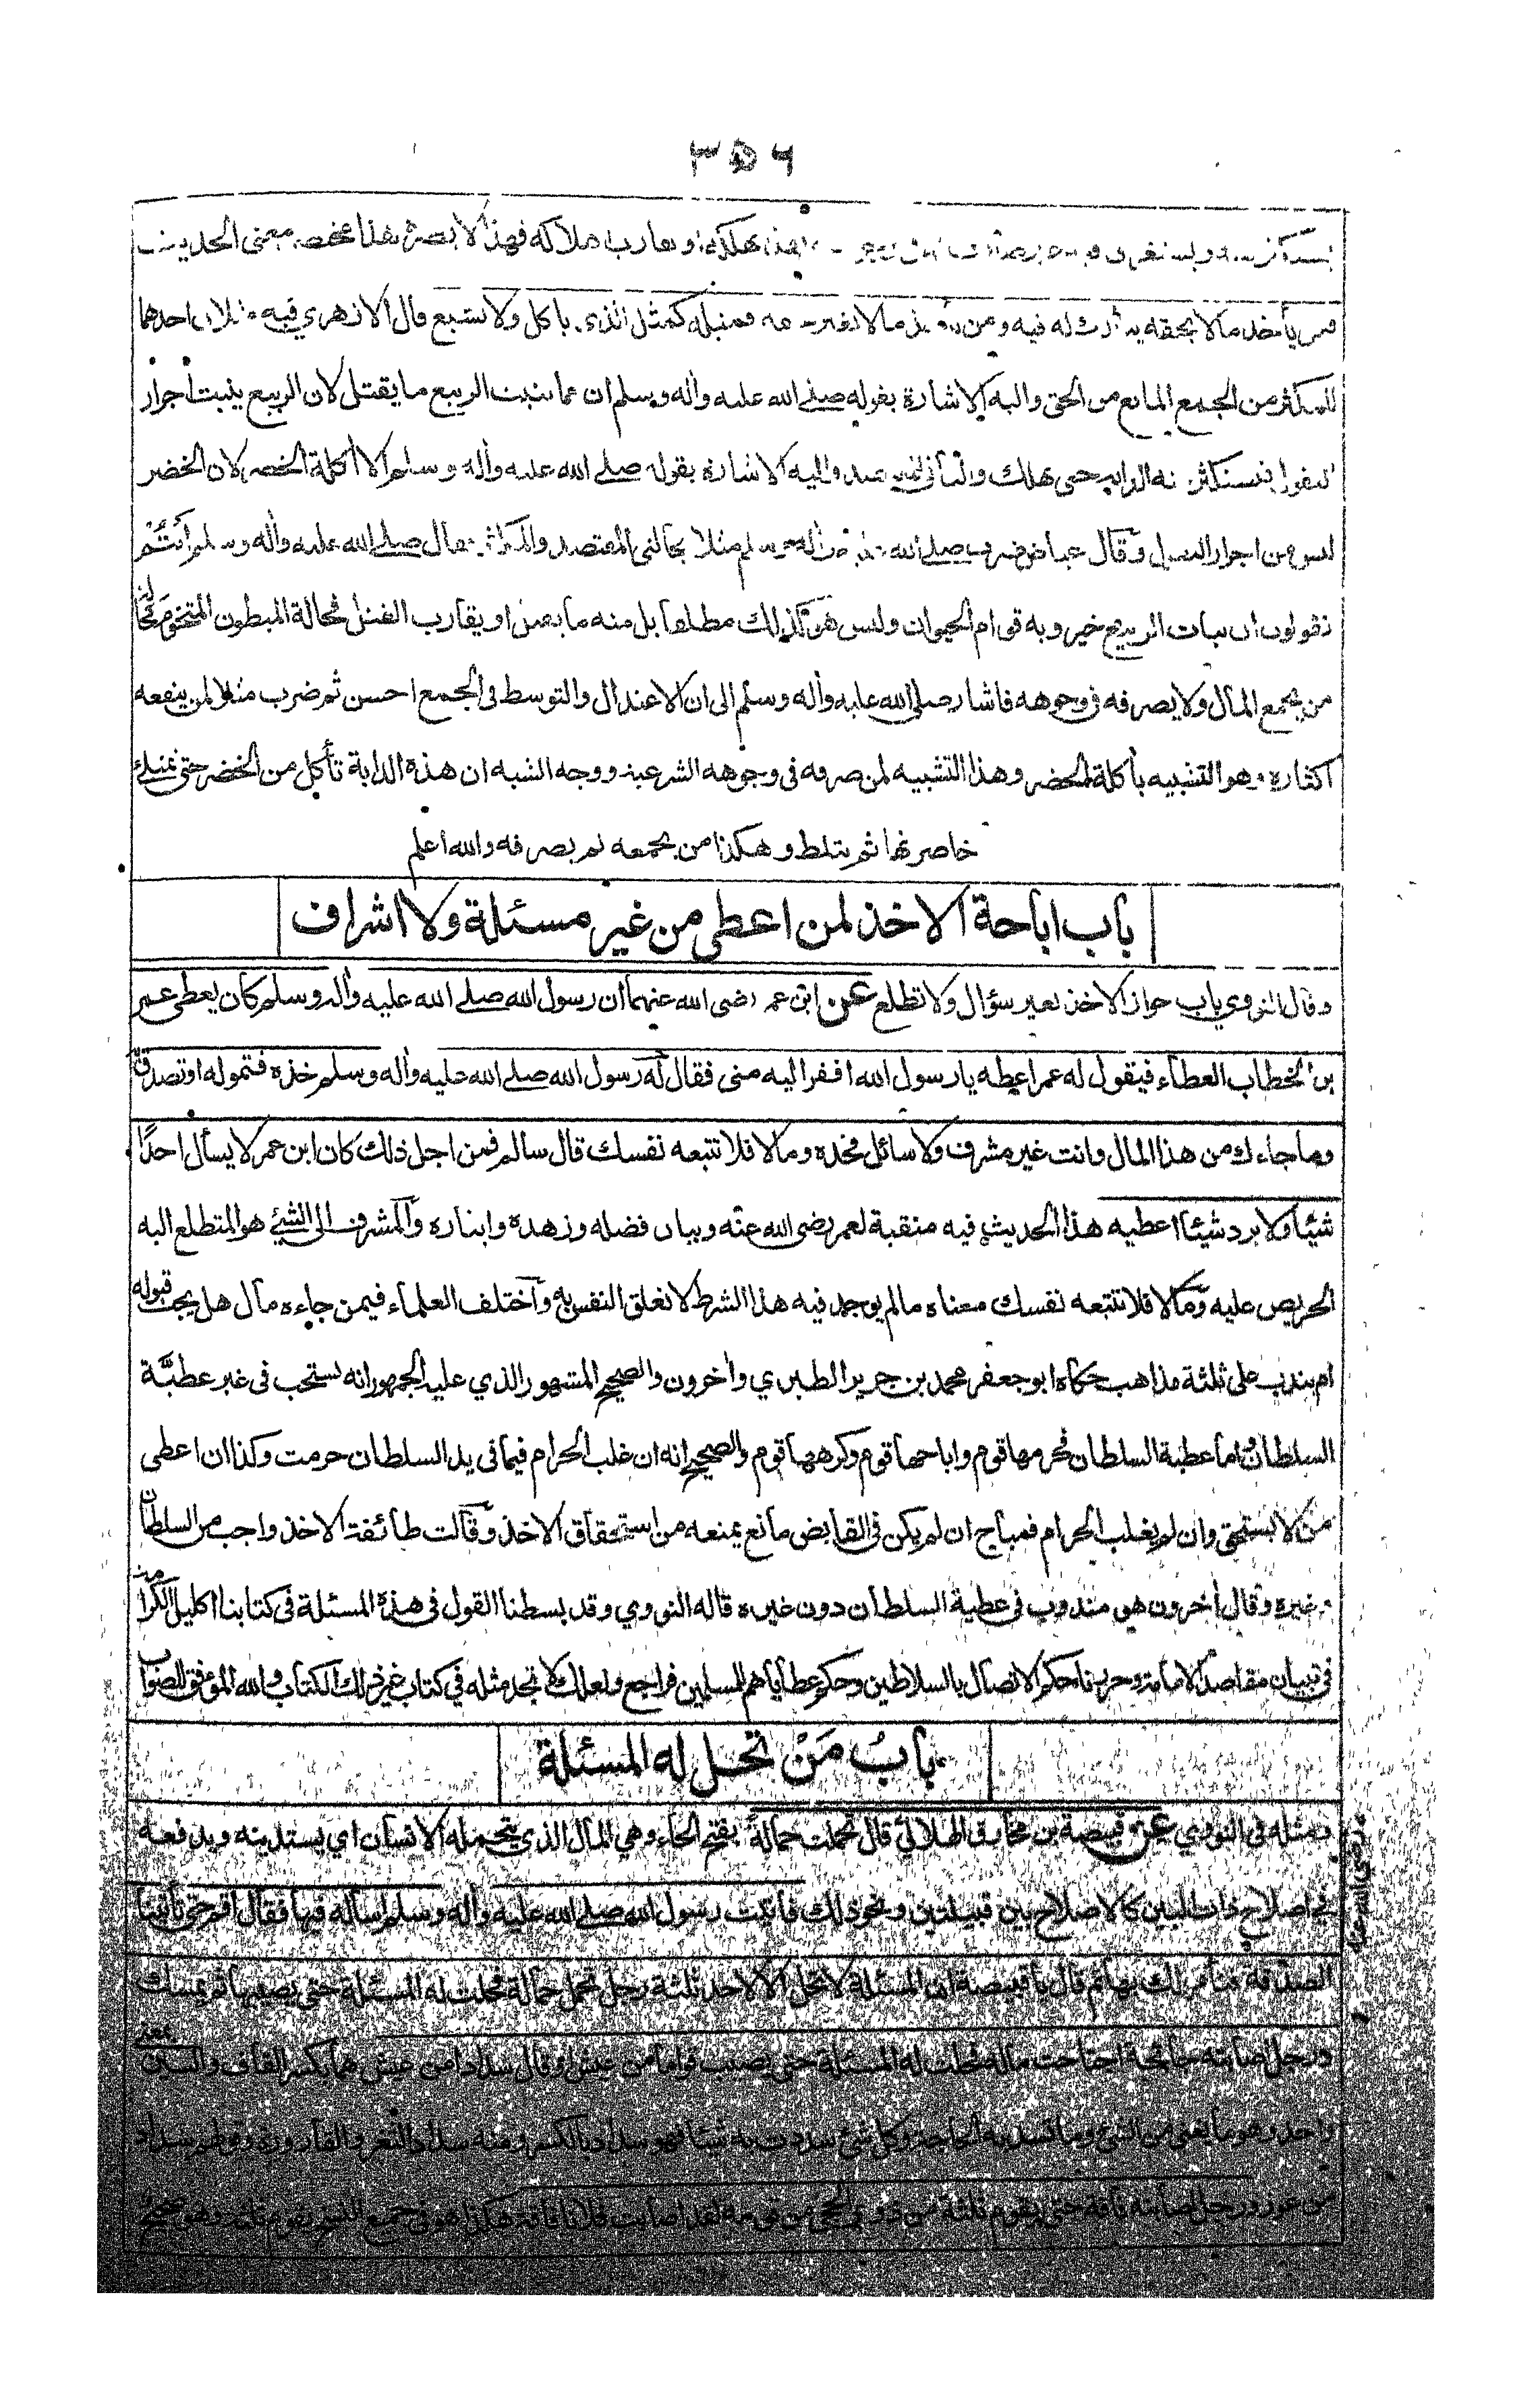 ٣٥٦
فهذا يهلكه او يقارب هلاكه فهذا لا يصرفه هذا مختصر معنى الحديث
فمن يأخذ مالا بحقه يبارك له فيه ومن يأخذ مالا بغير حقه فمثله كمثل الذى يأكل ولا يشبع قال الازهري فيه مثلان احدهما
للمكثر من الجمع المانع من الحق واليه الاشارة بقوله صلى الله عليه واله وسلم ان مما ينبت الربيع ما يقتل لان الربيع ينبت أجرار
البقول فتستكثر منه الدابة حتى تهلك والثانى للمقتصد واليه الاشارة بقوله صلى الله عليه واله وسلم الا أكلة الخضر لان الخضر
ليس من اجرار البقول وقال عياض ضرب صلى الله عليه واله وسلم مثلا بحالتى المقتصد والمكثر فقال صلى الله عليه واله وسلم أنتم
تقولون ان نبات الربيع خير وبه قوام الحيوان وليس هو كذلك مطلقا بل منه ما يقتل او يقارب القتل فحالة المبطون المتخوم كحالة
من يجمع المال ولا يصرفه فى وجوهه فاشار صلى الله عليه واله وسلم الى ان الاعتدال والتوسط فى الجمع احسن ثم ضرب مثلا لمن ينفعه
اكثاره وهو التشبيه بأكلة الخضر وهذا التشبيه لمن صرفه فى وجوهه الشرعية ووجه الشبه ان هذه الدابة تأكل من الخضر حتى تمتلئ
خاصرتها ثم تثلط وهكذا من يجمعه ثم يصرفه والله اعلم
باب اباحة الاخذ لمن اعطى من غير مسئلة ولا اشراف
وقال النووي باب جواز الاخذ بغير سؤال ولا تطلع عن ابن عمر رضى الله عنهما ان رسول الله صلى الله عليه واله وسلم كان يعطى عمر
بن الخطاب العطاء فيقول له عمر اعطه يا رسول الله افقر اليه منى فقال له رسول الله صلى الله عليه واله وسلم خذه فتموله او تصدق به
وما جاءك من هذا المال وانت غير مشرف ولا سائل فخذه وما لا فلا تتبعه نفسك قال سالم فمن اجل ذلك كان ابن عمر لا يسأل احدًا
شيئا ولا يرد شيئا اعطيه هذا الحديث فيه منقبة لعمر رضى الله عنه وبيان فضله وزهده وايثاره والمشرف الى الشيء هو المتطلع اليه
الحريص عليه وما لا فلا تتبعه نفسك معناه ما لم يوجد فيه هذا الشرط لا تعلق النفس به واختلف العلماء فيمن جاءه مال هل يجب قبوله
ام يندب على ثلثة مذاهب حكاه ابو جعفر محمد بن جرير الطبري واخرون والصحيح المشهور الذي عليه الجمهور انه يستحب فى غير عطيّة
السلطان واما عطية السلطان فحرمها قوم واباحها قوم وكرهها قوم والصحيح انه ان غلب الحرام فيما فى يد السلطان حرمت وكذا ان اعطى
من لا يستحق وان لم يغلب الحرام فمباح ان لم يكن فى القابض مانع يمنعه من استحقاق الاخذ وقالت طائفة الاخذ واجب من السلطان
وغيره وقال اخرون هو مندوب فى عطية السلطان دون غيره قاله النووي وقد بسطنا القول فى هذه المسئلة فى كتابنا اكليل الكرامة
فى تبيان مقاصد الامامة وحررنا حكم الاتصال بالسلاطين وحكم عطاياهم للمسلمين فراجع ولعلك لا تجد مثله فى كتاب غير ذلك الكتاب والله الموفق للصواب
باب مَنْ تحل له المسئلة
ومثله فى النووي عن قبيصة بن مخارق الهلالي قال تحملت حمالة بفتح الحاء وهي المال الذي يتحمله الانسان اي يستدينه ويدفعه
فى اصلاح ذات البين كالاصلاح بين قبيلتين ونحو ذلك فأتيت رسول الله صلى الله عليه واله وسلم اسأله فيها فقال اقم حتى تأتينا
الصدقة فنأمر لك بها ثم قال يا قبيصة ان المسئلة لا تحل الا لاحد ثلثة رجل تحمل حمالة فحلت له المسئلة حتى يصيبها ثم يمسك
ورجل اصابته جائحة اجتاحت ماله فحلت له المسئلة حتى يصيب قواما من عيش او قال سدادا من عيش هما بكسر القاف والسين بمعنى
واحد وهو ما يغنى من الشئ وما تسد به الحاجة وكل شئ سددت به شيئا فهو سداد بالكسر ومنه سداد الثغر والقارورة وقولهم سداد
من عوز ورجل اصابته فاقة حتى يقوم ثلثة من ذوي الحجى من قومه لقد اصابت فلانا فاقة هكذا هو فى جميع النسخ يقوم ثلثة وهو صحيح